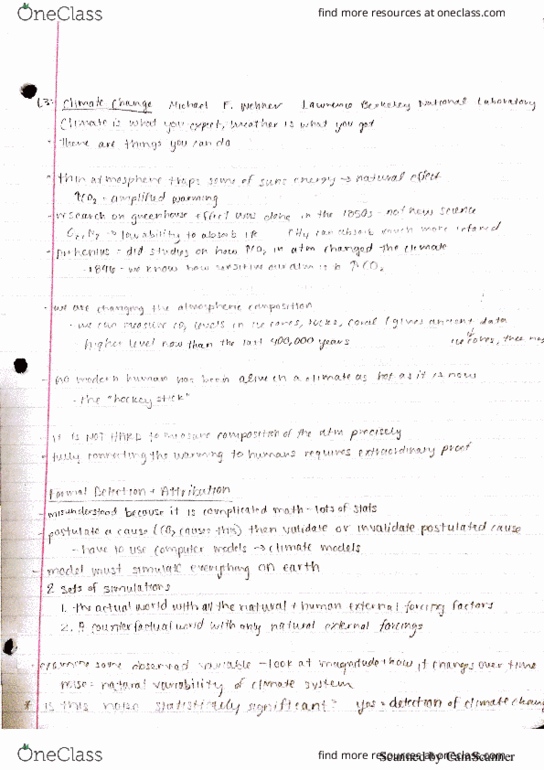 OneClass find more resources at oneclass.com
L3: Climate Change Michael F. Wehner Lawrence Berkeley National Laboratory
Climate is what you expect, weather is what you get
- There are things you can do
- thin atmosphere traps some of suns energy → natural effect
↑CO2 = amplified warming
- research on greenhouse effect was done in the 1850s - not new science
→ low ability to absorb IR CH4 can absorb much more infrared
- Arrhenius - did studies on how ↑CO2 in atm changed the climate
- 1896 - we know how sensitive our atm is to ↑CO2
- we are changing the atmosphere composition
- we can measure CO2 levels in ice cores, rocks, coral (gives ancient data
higher level now than the last 400,000 years ice cores, tree
- no modern human has been alive in a climate as hot as it is now
- the "hockey stick"
- it is NOT HARD to measure composition of the atm precisely
- fully connecting the warming to humans requires extraordinary proof
Formal Detection + Attribution
- misunderstood because it is complicated math - lots of stats
- postulate a cause (CO2 causes this) then validate or invalidate postulated cause
- have to use computer models → climate models
- model must simulate everything on earth
2 sets of simulations
1. the actual world with all the natural + human external forcing factors
2. A counterfactual world with only natural external forcings
- examine some observed variable - look at magnitude + how it changes over time
noise = natural variability of climate system
* is this noise statistically significant? yes = detection of climate change
OneClass find more resources at oneclass.com
Scanned by CamScanner